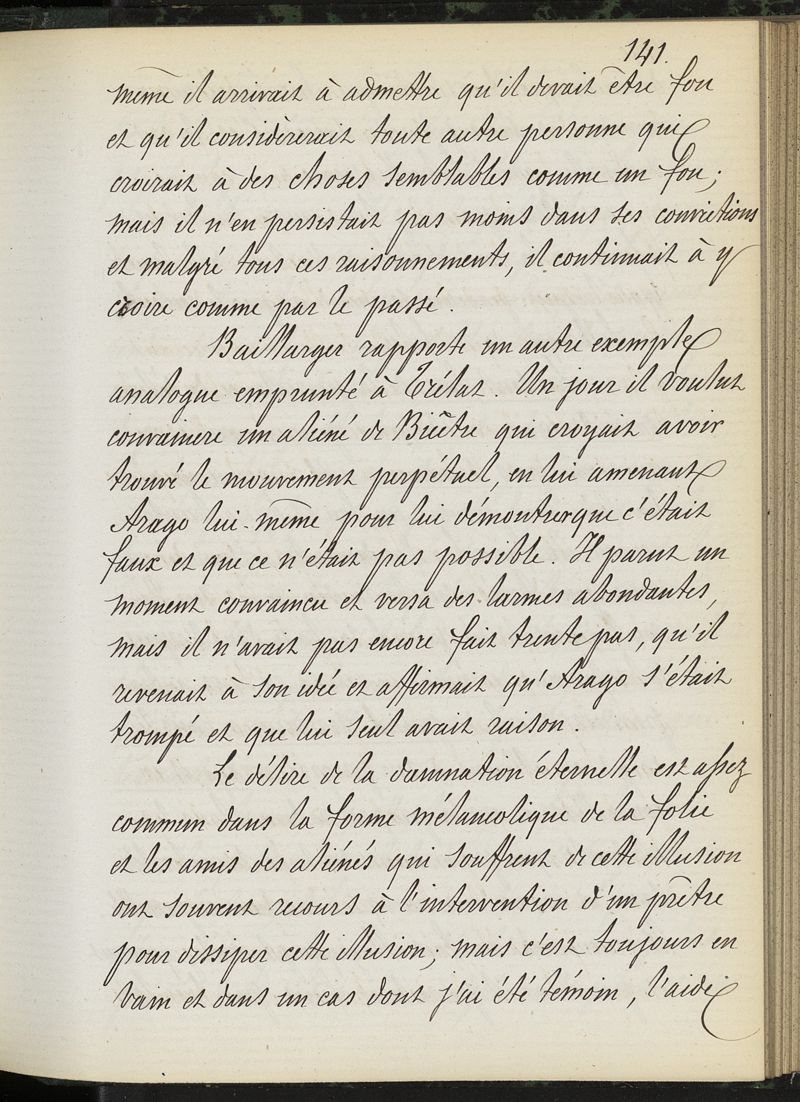 141.
même il arrivait à admettre qu'il devait être fou
et qu'il considèrerait toute autre personne qui
croirait à des choses semblables comme un fou;
mais il n'en persistait pas moins dans ses convictions
et malgré tous ces raisonnements, il continuait à y
croire comme par le passé.
Baillarger rapporte un autre exemple
analogue emprunté à Trélat. Un jour il voulut
convaincre un aliéné de Bicêtre qui croyait avoir
trouvé le mouvement perpétuel, en lui amenant
Arago lui-même pour lui démontrer que c'était
faux et que ce n'était pas possible. Il parut un
moment convaincu et versa des larmes abondantes,
mais il n'avait pas encore fait trente pas, qu'il
revenait à son idée et affirmait qu'Arago s'était
trompé et que lui seul avait raison.
Le délire de la damnation éternelle est assez
commun dans la forme mélancolique de la folie
et les amis des aliénés qui souffrent de cette illusion
ont souvent recours à l'intervention d'un prêtre
pour dissiper cette illusion; mais c'est toujours en
vain et dans un cas dont j'ai été témoin, l'aide